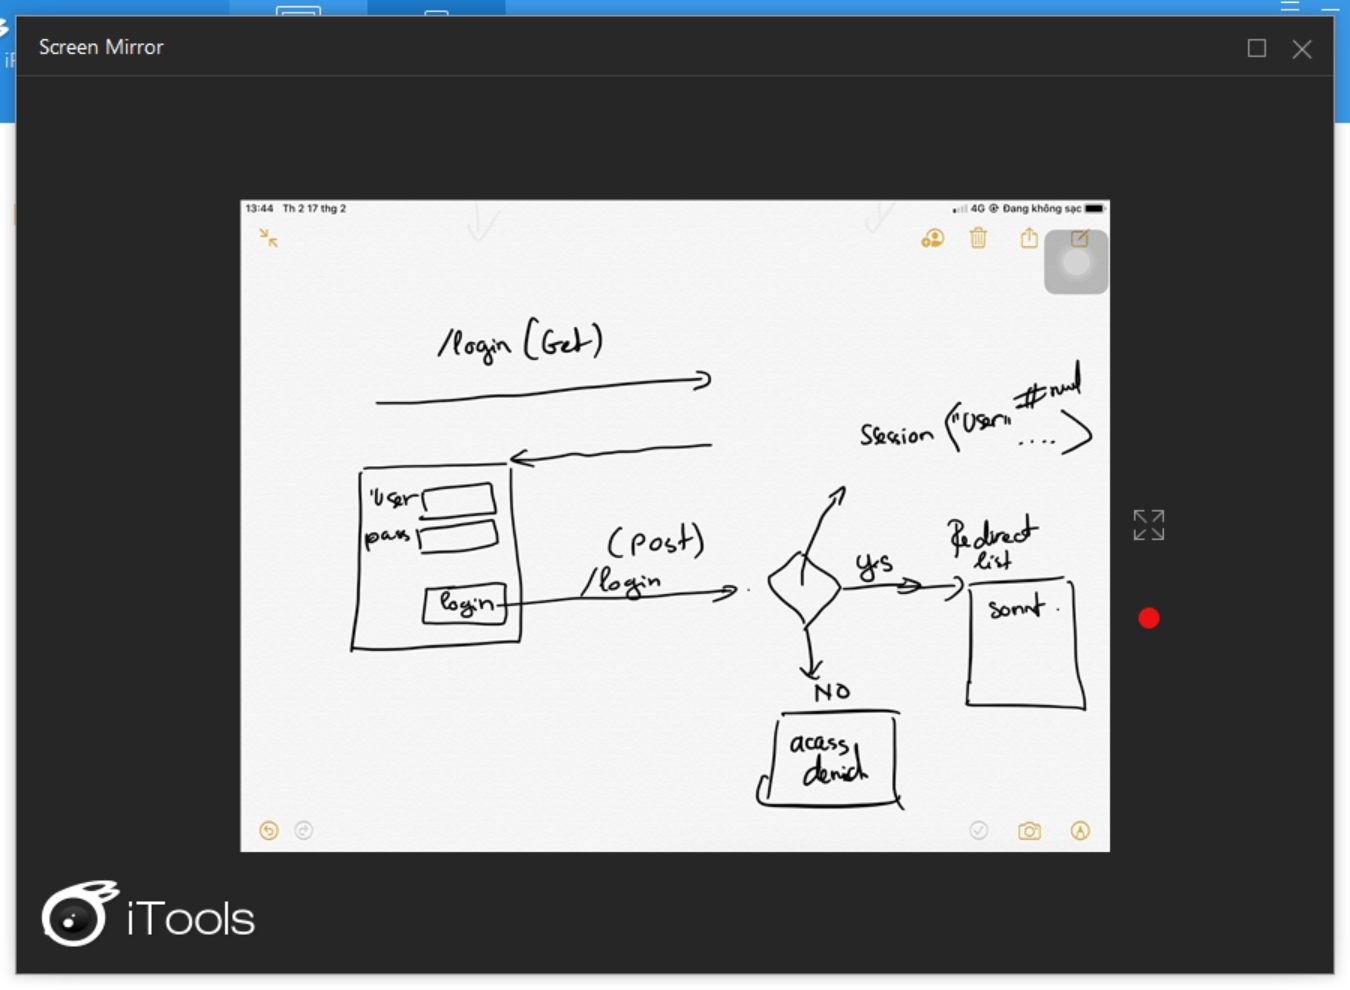 Screen Mirror
13:44 Th 2 17 thg 2
4G Đang không sạc
/login (Get)
Session ("User" ≠ null
....)
User
pass
login
(post)
/login
yes
Redirect
list
sonnt.
NO
acass
denied
iTools